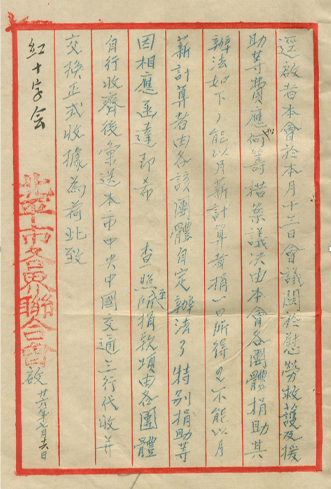 逕啟者本會於本月十三日會議關於慰勞救護及援
助等費應如何籌措案議決由本會各團體捐助其
辦法如下1能以月薪計算者捐一日所得2不能以月
薪計算者由各該團體自定辦法3特別捐助等
因相應函達即希 查照至所捐款項由各團體
自行收齊後彙送本市中央中國交通三行代收并
交換正式收據為荷此致
紅十字会
北平市各界聯合會啟 廿六年七月十六日